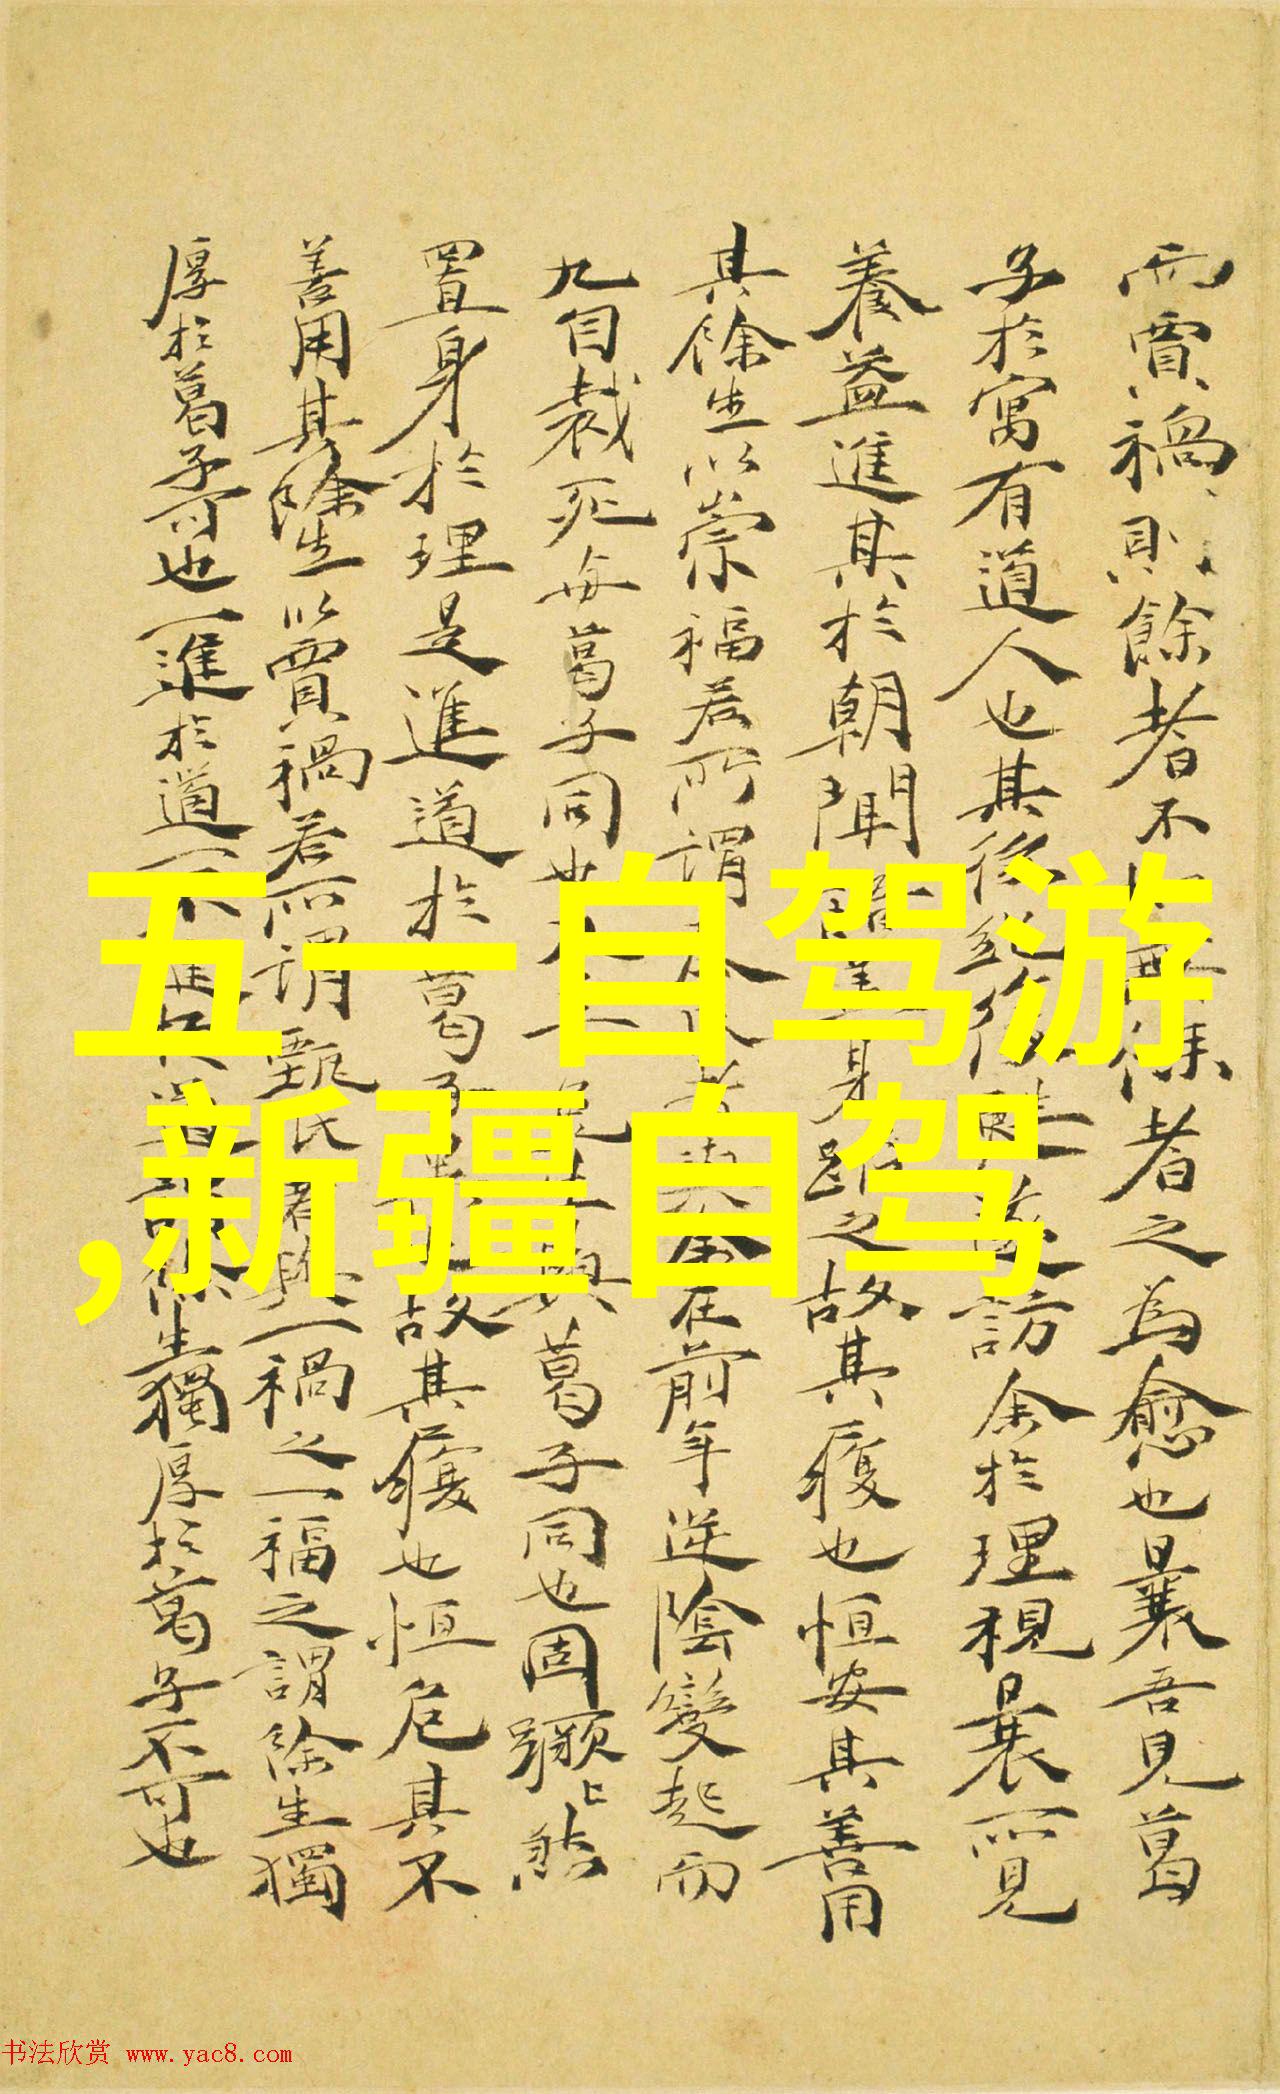 而賈禍則餘者不
者之為愈也曩吾見葛
子於寓有道人也其後
訪余於理視曩所見
養益進其於朝聞
身 之故其履也恒安其善用
其餘生以崇福若所謂
在前年逆陰變起而
九自裁死毋葛子同也
葛子同也固蹶
置身於理是進道於葛
故其履也恒危其不
善用其餘生以賈禍若所謂甄氏者
一禍之一福之謂餘生獨
厚於葛子可也一進於道一不進於道
餘生獨厚於葛子不可也
五一自驾游
,新疆自驾
书法欣赏 www.yac8.com